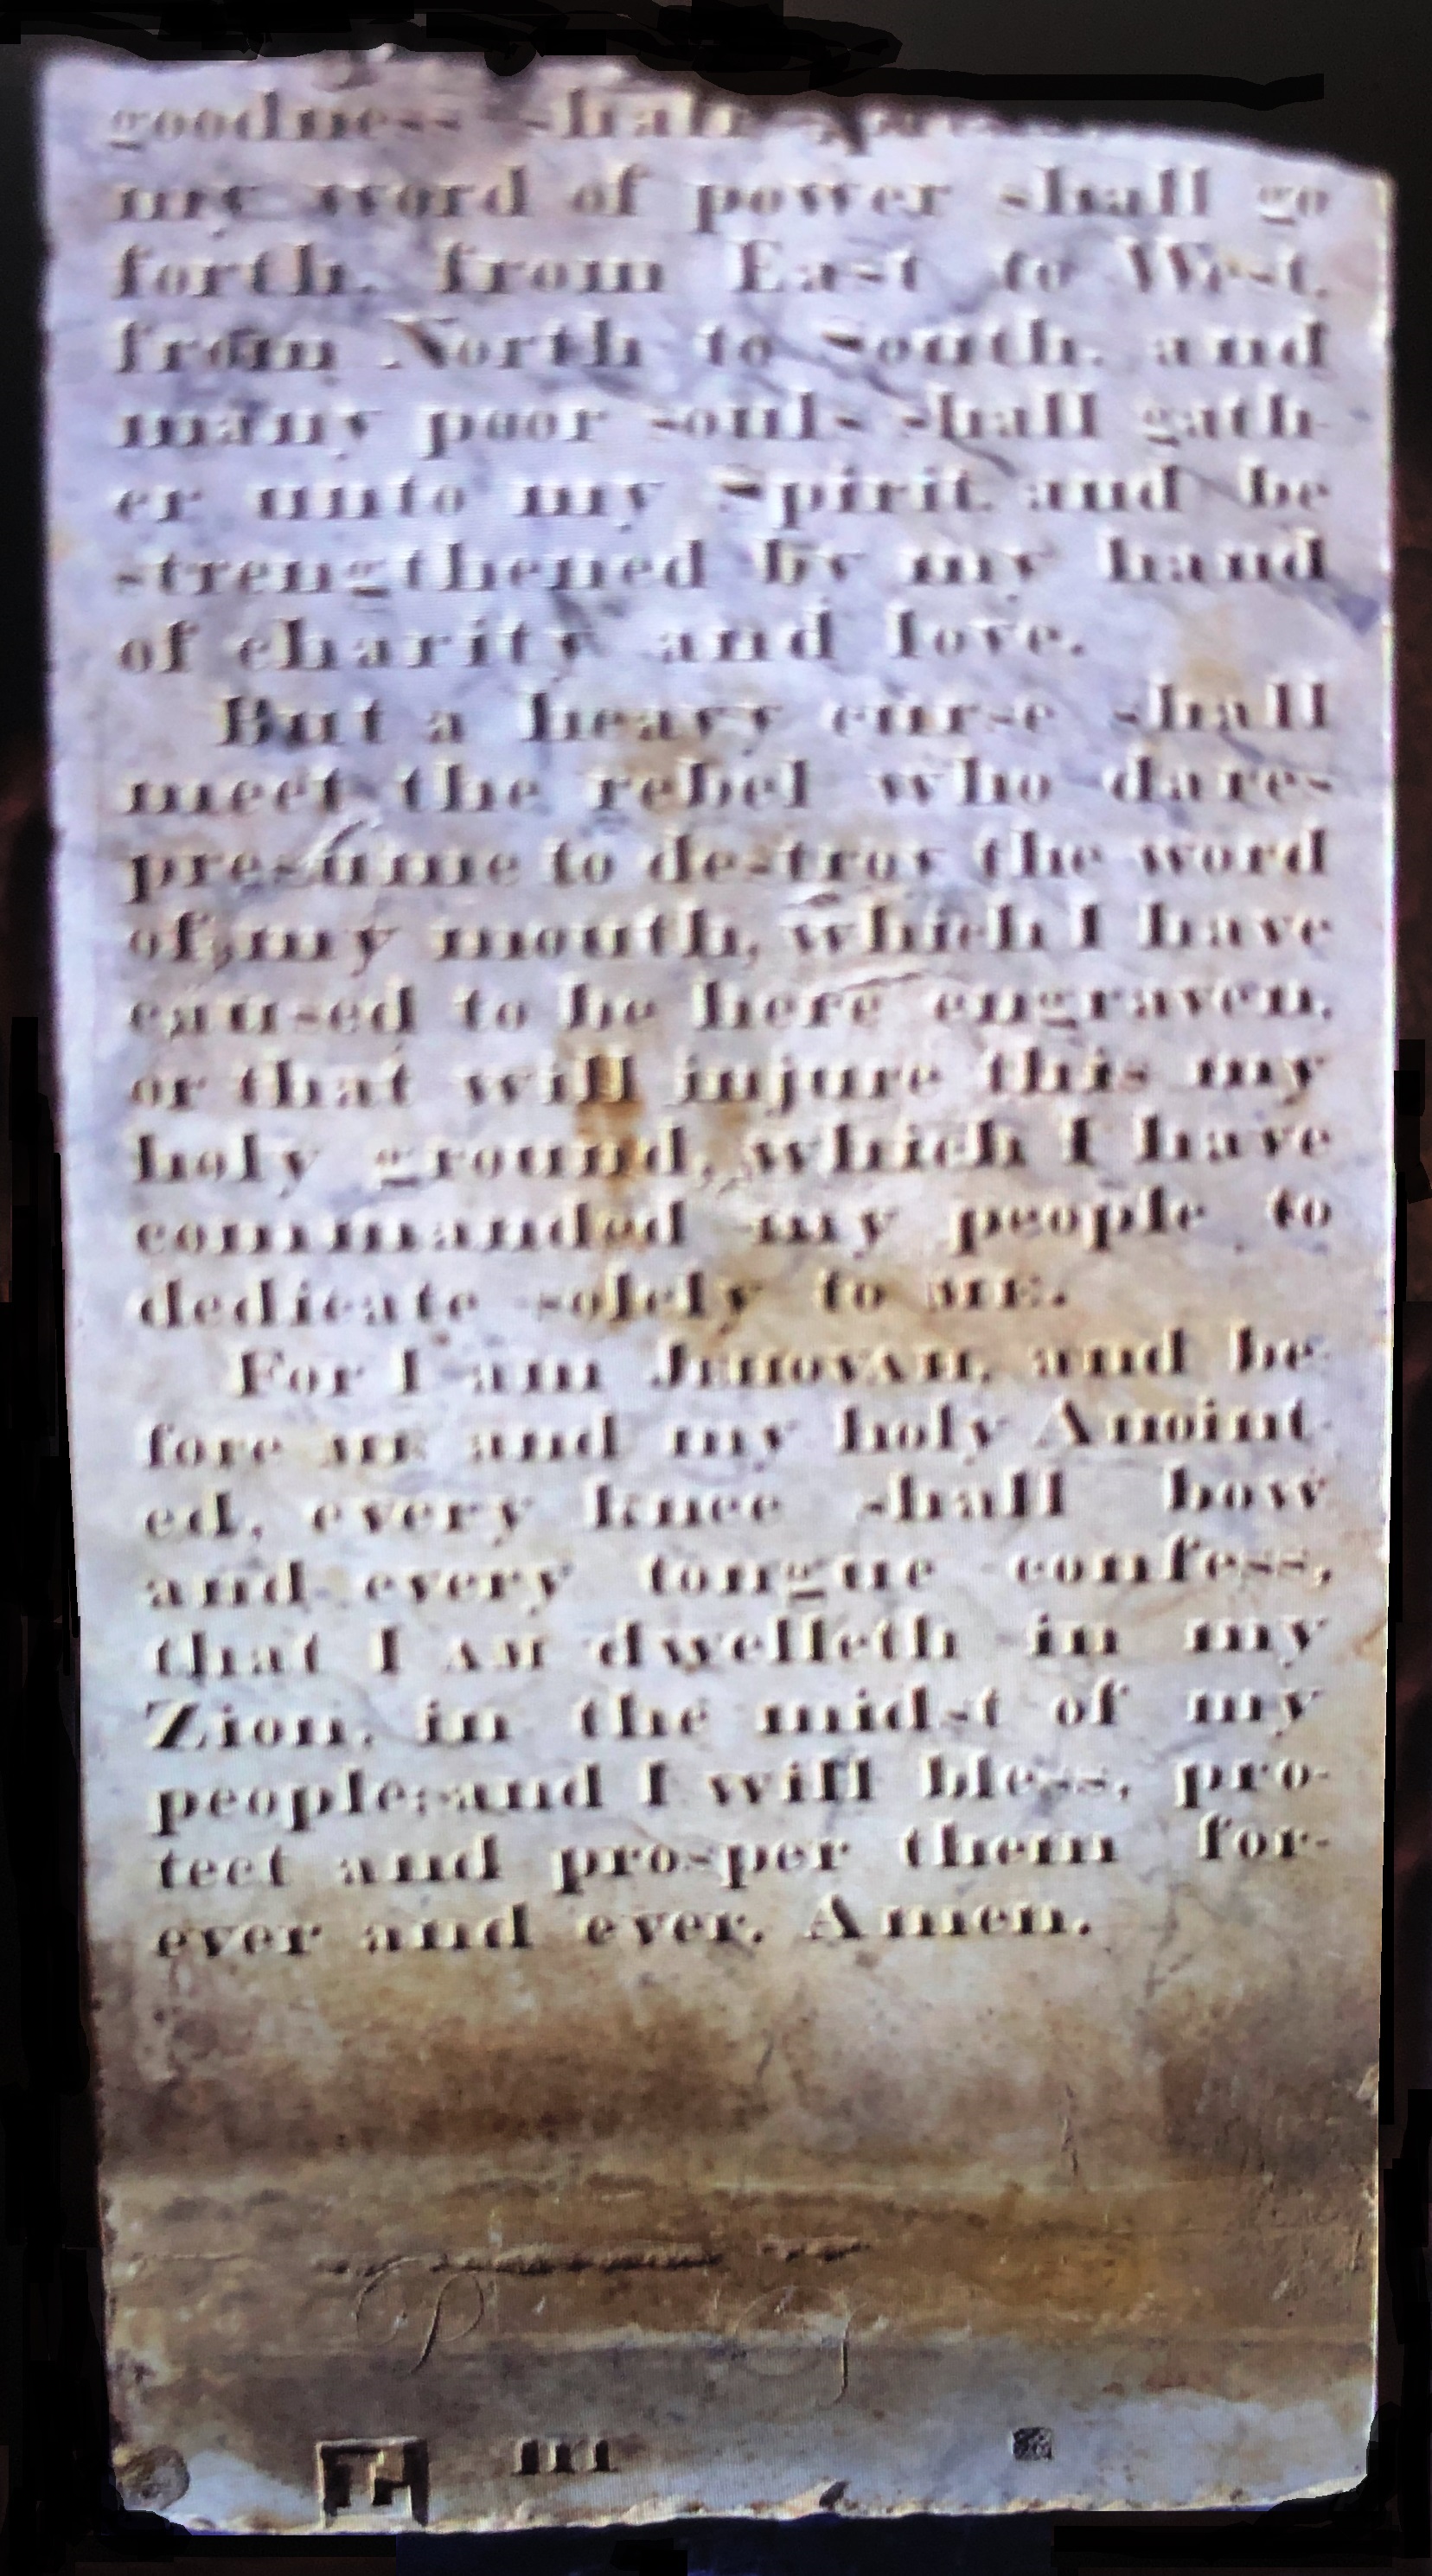 goodness shall
my word of power shall go
forth, from East to West,
from North to South, and
many poor souls shall gath-
er unto my Spirit, and be
strengthened by my hand
of charity and love.
But a heavy curse shall
meet the rebel who dares
presume to destroy the word
of my mouth, which I have
caused to be here engraven,
or that will injure this my
holy ground, which I have
commanded my people to
dedicate solely to ME.
For I am JEHOVAH, and be-
fore ME and my holy Anoint-
ed, every knee shall bow
and every tongue confess,
that I AM dwelleth in my
Zion, in the midst of my
people; and I will bless, pro-
tect and prosper them for-
ever and ever. Amen.